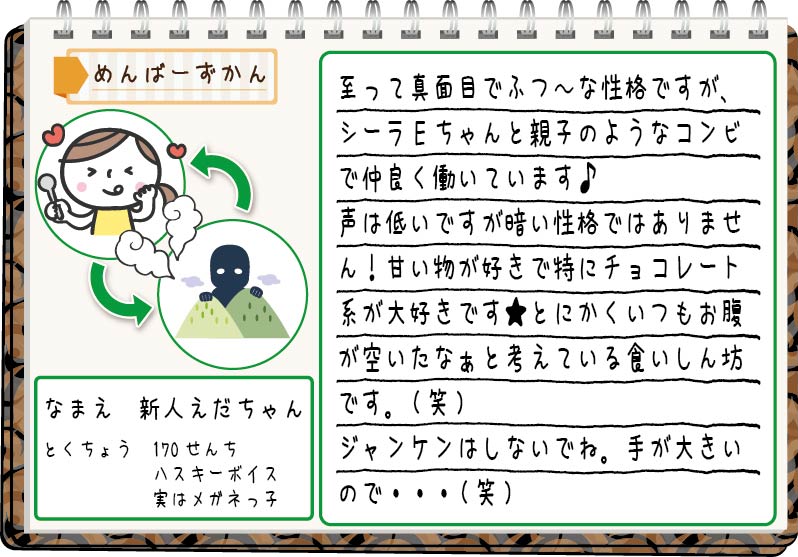 めんばーずかん
至って真面目でふつ～な性格ですが、
シーラEちゃんと親子のようなコンビ
で仲良く働いています♪
声は低いですが暗い性格ではありませ
ん！甘い物が好きで特にチョコレート
系が大好きです★とにかくいつもお腹
が空いたなぁと考えている食いしん坊
です。(笑)
ジャンケンはしないでね。手が大きい
ので・・・(笑)
なまえ　新人えだちゃん
とくちょう　170せんち
ハスキーボイス
実はメガネっ子